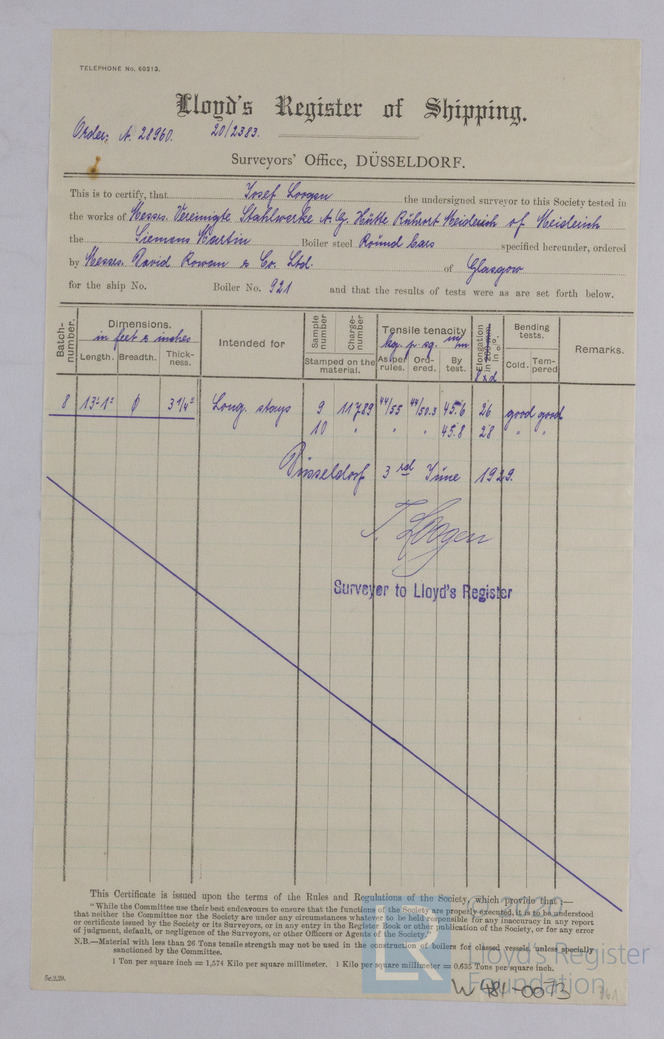 TELEPHONE No. 60313.
Lloyd's Register of Shipping.
Order: N. 28960. 20/2383.
Surveyors' Office, DÜSSELDORF.
This is to certify, that Josef Loogen the undersigned surveyor to this Society tested in
the works of Messrs. Vereinigte Stahlwerke A.G. Hütte Ruhrort Meiderich of Meiderich
the Siemens Martin Boiler steel Round bars specified hereunder, ordered
by Messrs. David Rowan & Co. Ltd. of Glasgow
for the ship No. Boiler No. 921 and that the results of tests were as are set forth below.
Batch-number. Dimensions. in feet & inches Length. Breadth. Thick-ness. Intended for Sample number Charge-number Stamped on the material. Tensile tenacity kg. p. sq. m/m As per rules. Ord-ered. By test. Elongation in 200 mm in %. 8xd Bending tests. Cold. Tem-pered Remarks.
8 13'-1" 3 1/4" Long. stays 9 11789 44/55 44/50.3 45.6 26 good good
10 " " " 45.8 28 " "
Düsseldorf 3rd June 1929.
J. Loogen
Surveyor to Lloyd's Register
This Certificate is issued upon the terms of the Rules and Regulations of the Society, which provide that:—
"While the Committee use their best endeavours to ensure that the functions of the Society are properly executed, it is to be understood
that neither the Committee nor the Society are under any circumstances whatever to be held responsible for any inaccuracy in any report
or certificate issued by the Society or its Surveyors, or in any entry in the Register Book or other publication of the Society, or for any error
of judgment, default, or negligence of the Surveyors, or other Officers or Agents of the Society."
N.B.—Material with less than 26 Tons tensile strength may not be used in the construction of boilers for classed vessels, unless specially
sanctioned by the Committee.
1 Ton per square inch = 1,574 Kilo per square millimeter. 1 Kilo per square millimetre = 0,635 Tons per square inch.
Lloyd's Register
Foundation
W481-0073